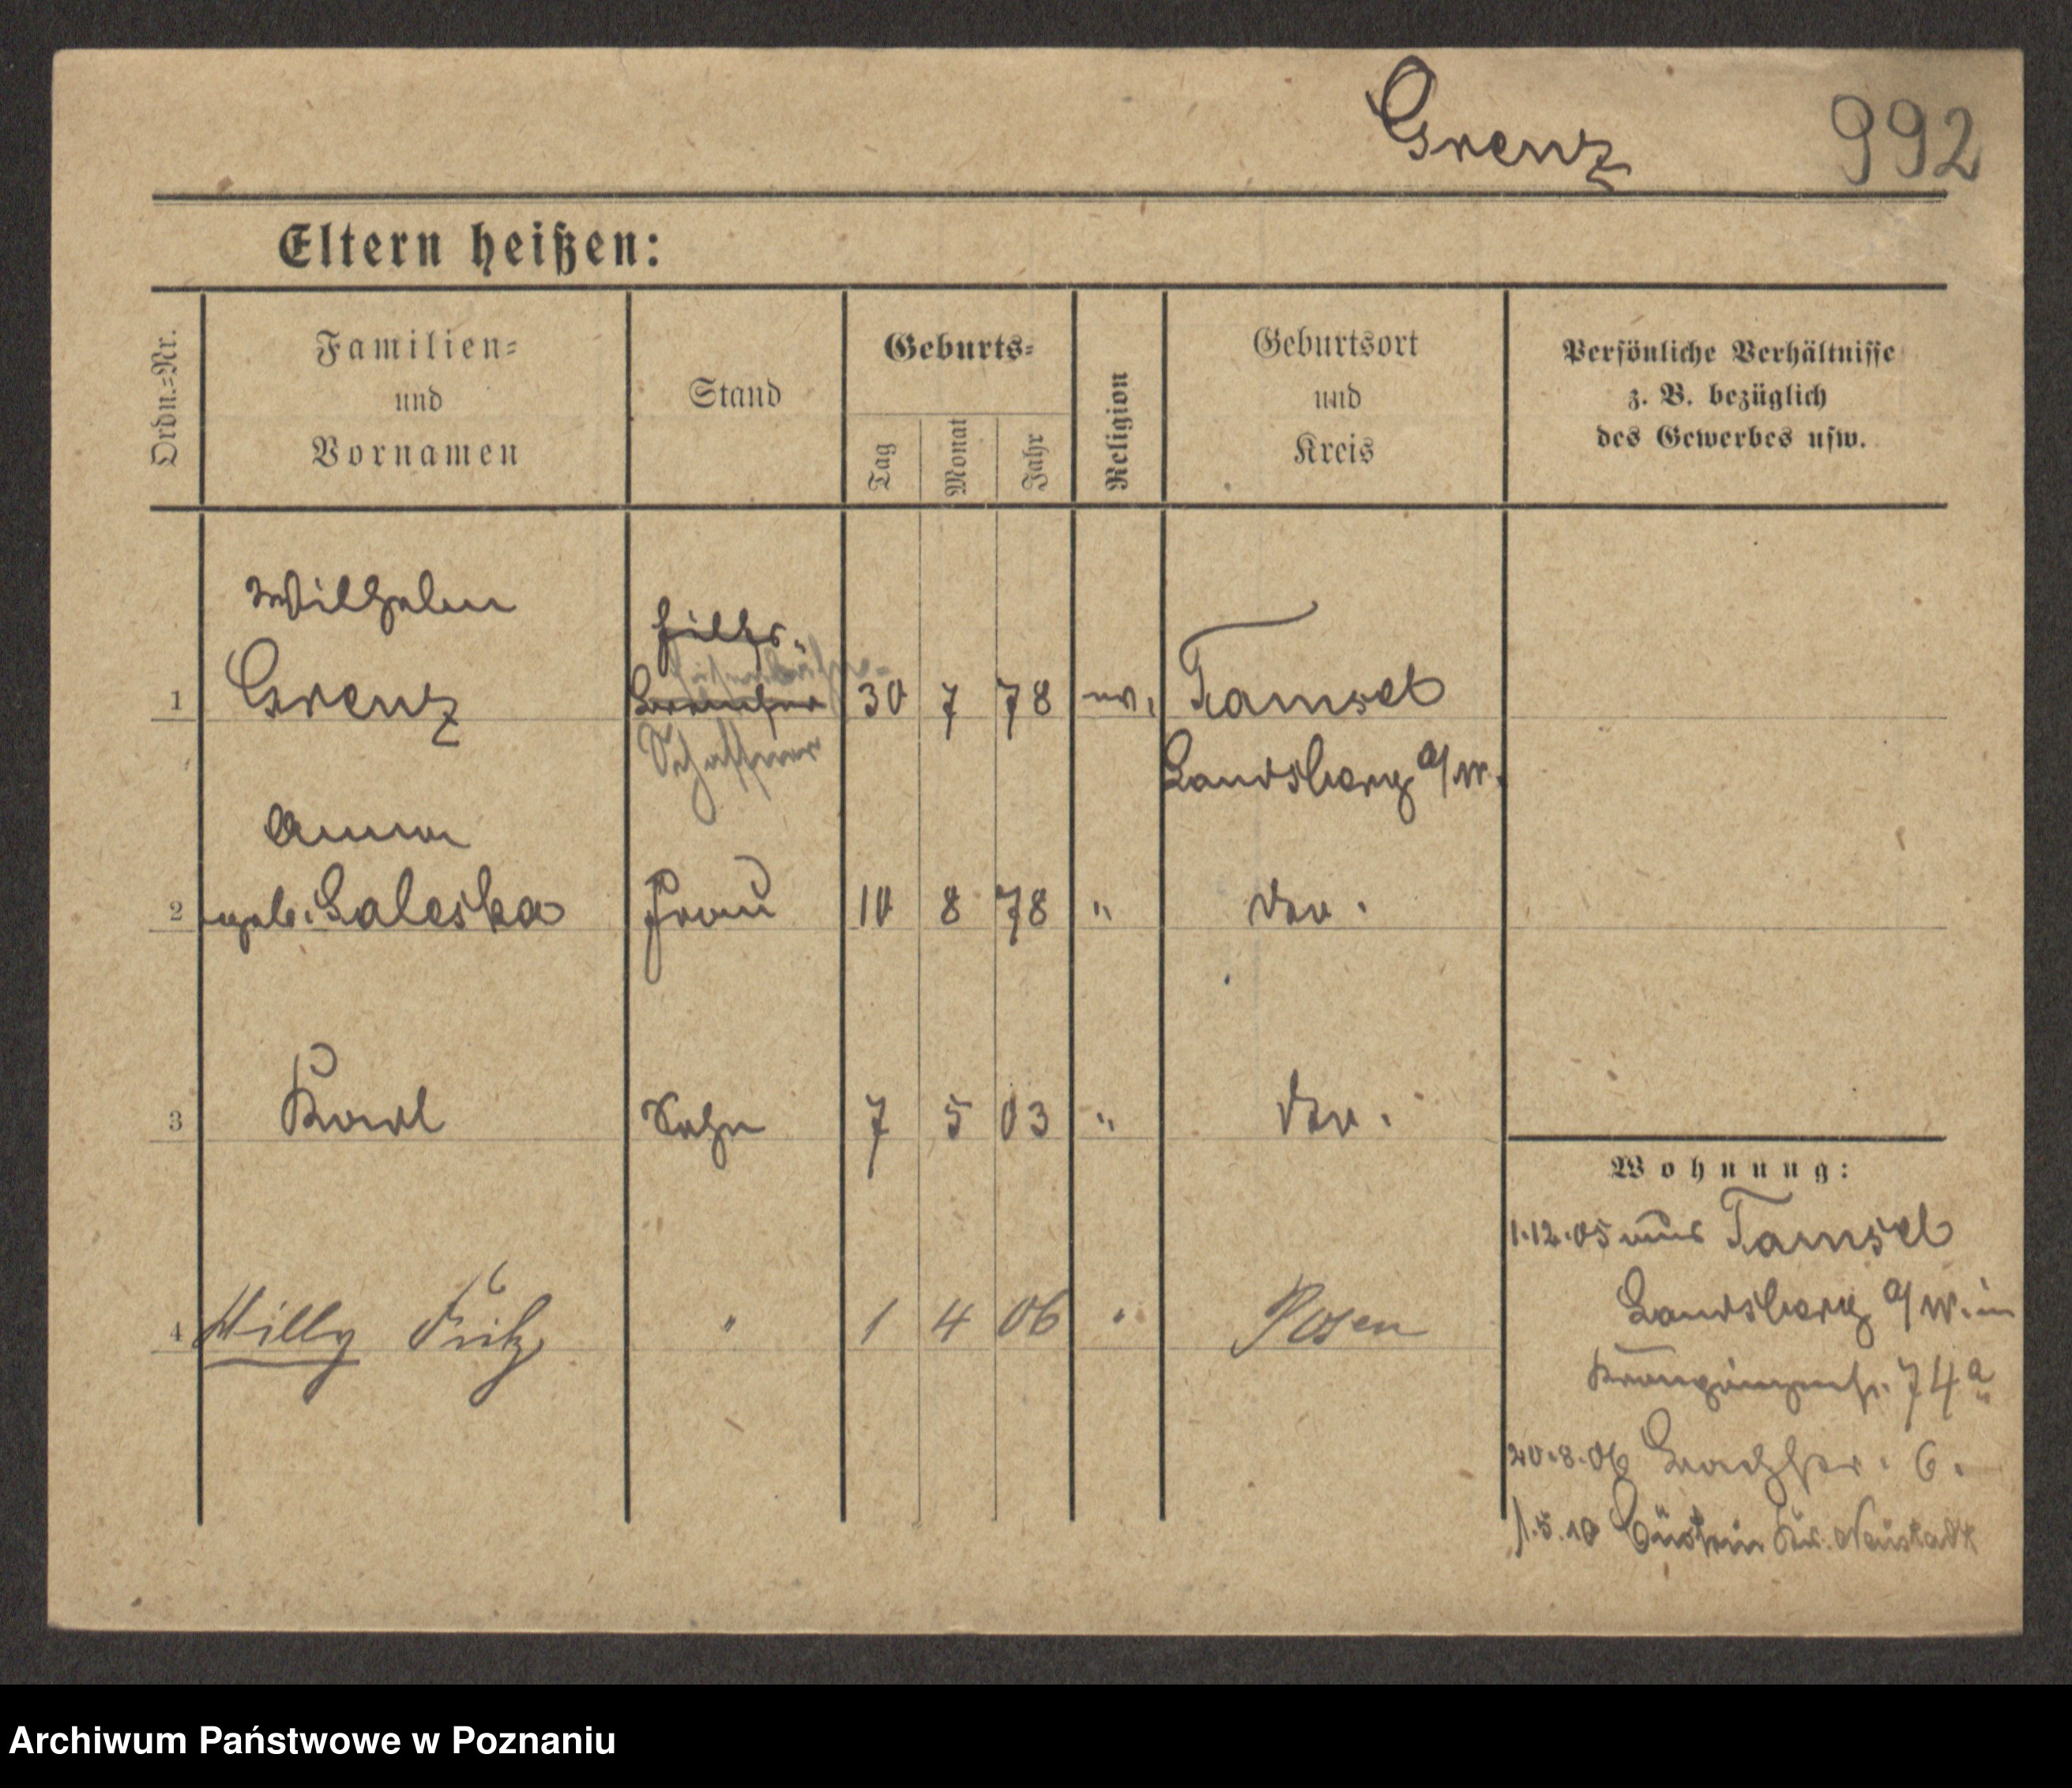 Grenz 992
Eltern heißen:
Ordn.-Nr.
Familien-
und
Vornamen
Stand
Geburts-
Tag
Monat
Jahr
Religion
Geburtsort
und
Kreis
Persönliche Verhältnisse
z. B. bezüglich
des Gewerbes usw.
Wilhelm
1 Grenz Hilfs- Bremser 30 7 78 ev. Tamsel
Schaffner Landsberg a/W.
Anna
2 geb. Saleska Frau 10 8 78 " do.
3 Karl Sohn 7 5 03 " do.
4 Willy Fritz " 1 4 06 " Posen
Wohnung:
1.12.05 aus Tamsel
Landsberg a/W. in
Kronprinzenstr. 74a
20.8.06 6.
1.5.10 Cüstrin Kr. Neustadt
Archiwum Państwowe w Poznaniu